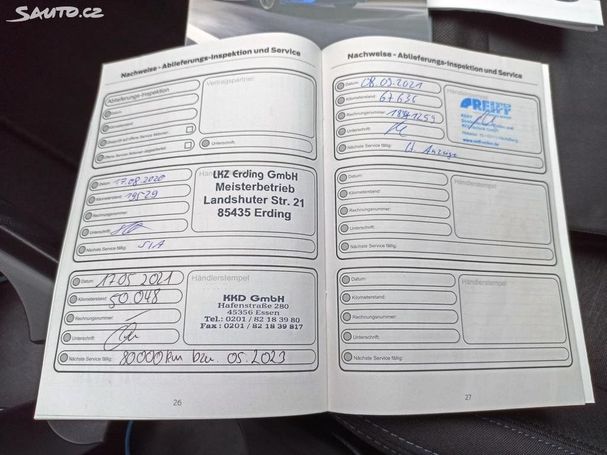 SAUTO.CZ
Nachweise - Ablieferungs-Inspektion und Service
Ablieferungs-Inspektion
Vertragspartner
Datum:
Unterschrift:
Datum: 17.08.2020
Kilometerstand: 19529
Rechnungsnummer:
Unterschrift:
Nächste Service fällig: SIA
LKZ Erding GmbH
Meisterbetrieb
Landshuter Str. 21
85435 Erding
Datum: 17.05 2021
Kilometerstand: 50 048
Rechnungsnummer:
Unterschrift:
Nächste Service fällig: 80000km bzw. 05.2023
Händlerstempel
KKD GmbH
Hafenstraße 280
45356 Essen
Tel.: 0201 / 82 18 39 80
Fax : 0201 / 82 18 39 817
26
Nachweise - Ablieferungs-Inspektion und Service
Datum: 08.09.2021
Kilometerstand: 67636
Rechnungsnummer:
Unterschrift:
Nächste Service fällig: lt Anzeige
Händlerstempel
Datum:
Kilometerstand:
Rechnungsnummer:
Unterschrift:
Nächste Service fällig:
Händlerstempel
Datum:
Kilometerstand:
Rechnungsnummer:
Unterschrift:
Nächste Service fällig:
Händlerstempel
27